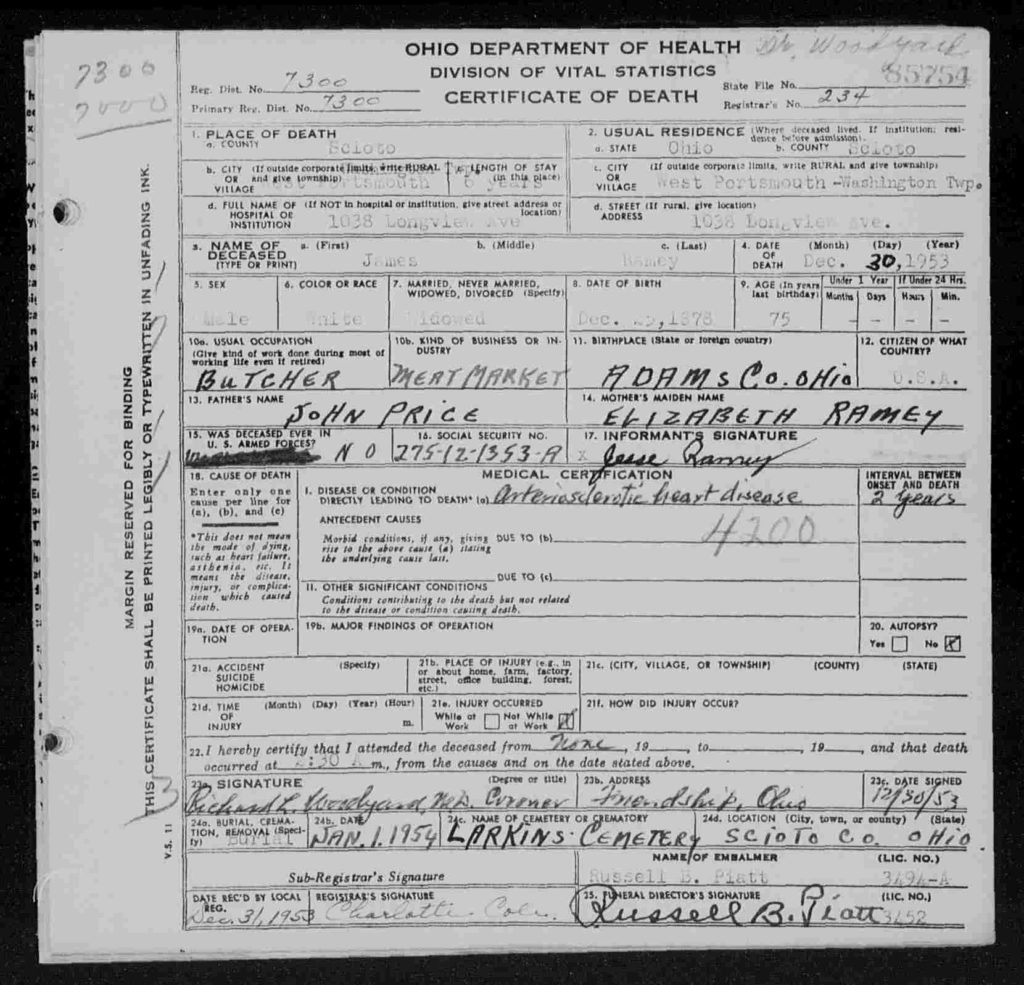 7300
7000
Dr. Woodyard
OHIO DEPARTMENT OF HEALTH
DIVISION OF VITAL STATISTICS
CERTIFICATE OF DEATH
Reg. Dist. No. 7300
Primary Reg. Dist. No. 7300
State File No. 85754
Registrar's No. 234
1. PLACE OF DEATH
a. COUNTY Scioto
2. USUAL RESIDENCE (Where deceased lived. If institution: residence before admission).
a. STATE Ohio b. COUNTY Scioto
b. CITY (If outside corporate limits, write RURAL OR and give township) VILLAGE West Portsmouth
c. LENGTH OF STAY (in this place) 6 years
c. CITY (If outside corporate limits, write RURAL and give township) OR VILLAGE West Portsmouth -Washington Twp.
d. FULL NAME OF (If NOT in hospital or institution, give street address or location) HOSPITAL OR INSTITUTION 1038 Longview Ave
d. STREET (If rural, give location) ADDRESS 1038 Longview Ave.
3. NAME OF DECEASED (TYPE OR PRINT)
a. (First) James
b. (Middle)
c. (Last) Ramey
4. DATE OF DEATH (Month) (Day) (Year) Dec. 30, 1953
5. SEX Male
6. COLOR OR RACE White
7. MARRIED, NEVER MARRIED, WIDOWED, DIVORCED (Specify) Widowed
8. DATE OF BIRTH Dec. 1878
9. AGE (In years last birthday) 75
Under 1 Year Months - Days -
If Under 24 Hrs. Hours - Min. -
10a. USUAL OCCUPATION (Give kind of work done during most of working life even if retired) BUTCHER
10b. KIND OF BUSINESS OR INDUSTRY MEAT MARKET
11. BIRTHPLACE (State or foreign country) ADAMS CO. OHIO
12. CITIZEN OF WHAT COUNTRY? U.S.A.
13. FATHER'S NAME JOHN PRICE
14. MOTHER'S MAIDEN NAME ELIZABETH RAMEY
15. WAS DECEASED EVER IN U. S. ARMED FORCES? NO
16. SOCIAL SECURITY NO. 275-12-1353-A
17. INFORMANT'S SIGNATURE
x Jesse Ramey
18. CAUSE OF DEATH
Enter only one cause per line for (a), (b), and (c)
*This does not mean the mode of dying, such as heart failure, asthenia, etc. It means the disease, injury, or complication which caused death.
MEDICAL CERTIFICATION
INTERVAL BETWEEN ONSET AND DEATH
I. DISEASE OR CONDITION DIRECTLY LEADING TO DEATH* (a) Arteriosclerotic heart disease
2 years
ANTECEDENT CAUSES
4200
Morbid conditions, if any, giving rise to the above cause (a) stating the underlying cause last. DUE TO (b)
DUE TO (c)
II. OTHER SIGNIFICANT CONDITIONS
Conditions contributing to the death but not related to the disease or condition causing death.
19a. DATE OF OPERATION
19b. MAJOR FINDINGS OF OPERATION
20. AUTOPSY?
Yes No X
21a. ACCIDENT SUICIDE HOMICIDE (Specify)
21b. PLACE OF INJURY (e.g., in or about home, farm, factory, street, office building, forest, etc.)
21c. (CITY, VILLAGE, OR TOWNSHIP) (COUNTY) (STATE)
21d. TIME OF INJURY (Month) (Day) (Year) (Hour) m.
21e. INJURY OCCURRED
While at Work Not While at Work
21f. HOW DID INJURY OCCUR?
22. I hereby certify that I attended the deceased from None, 19 , to , 19 , and that death
occurred at :30 A m., from the causes and on the date stated above.
23a. SIGNATURE (Degree or title) Richard L. Woodyard, M.D. Coroner
23b. ADDRESS Friendship, Ohio
23c. DATE SIGNED 12/30/53
24a. BURIAL, CREMATION, REMOVAL (Specify) Burial
24b. DATE JAN. 1. 1954
24c. NAME OF CEMETERY OR CREMATORY LARKINS CEMETERY
24d. LOCATION (City, town, or county) (State) SCIOTO CO. OHIO
Sub-Registrar's Signature
NAME OF EMBALMER Russell B. Piatt
(LIC. NO.) 3494-A
DATE REC'D BY LOCAL REG. Dec. 31, 1953
REGISTRAR'S SIGNATURE Charlotte Cole
25. FUNERAL DIRECTOR'S SIGNATURE Russell B. Piatt
(LIC. NO.) 3452
MARGIN RESERVED FOR BINDING
THIS CERTIFICATE SHALL BE PRINTED LEGIBLY OR TYPEWRITTEN IN UNFADING INK.
V.S. 11